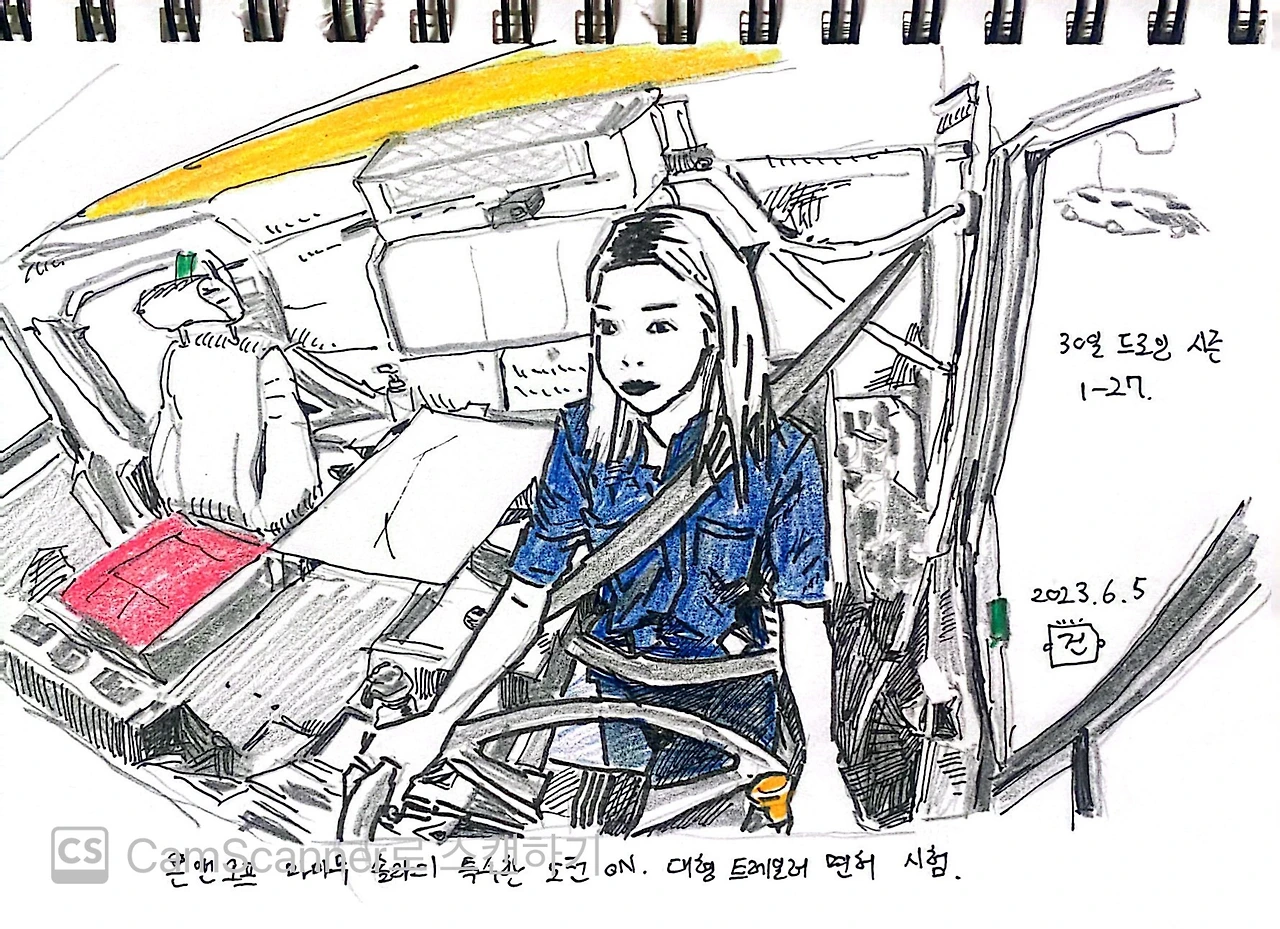 30일 드로잉 시즌
1-27.
2023.6.5
건
CS CamScanner로 스캔하기
온앤오프 마마무 솔라의 특수한 도전 ON. 대형 트레일러 면허 시험.